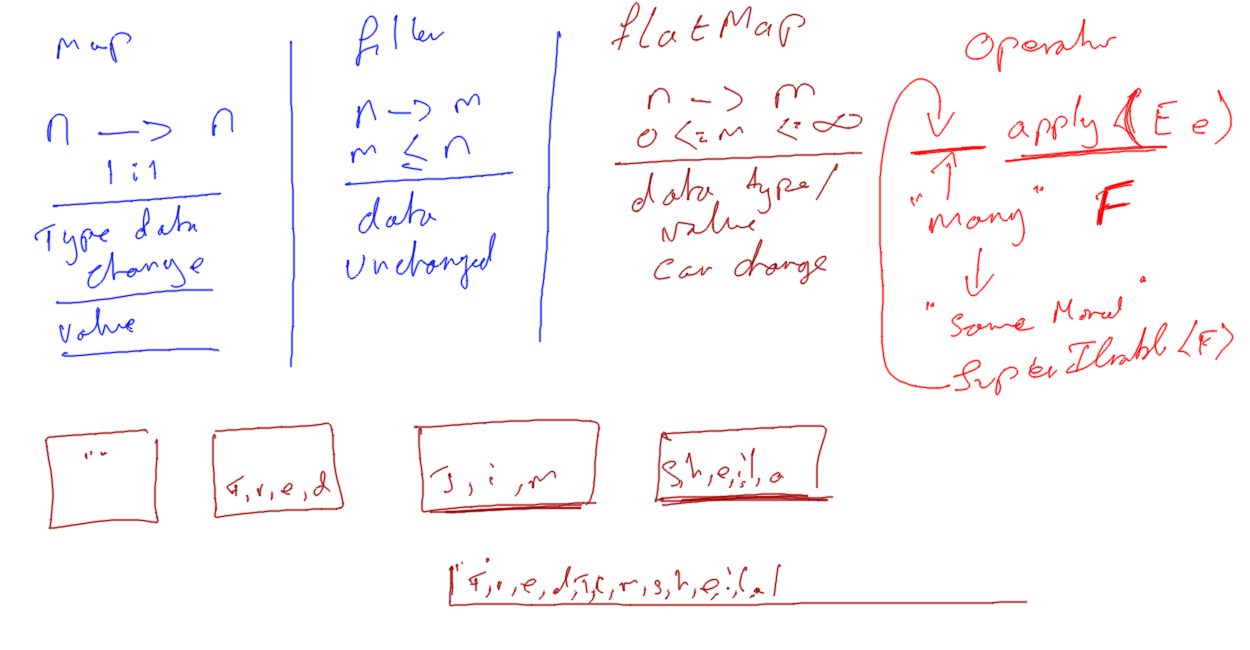 map
n —> n
1:1
Type data
change
value
filter
n —> m
m <= n
data
unchanged
flatMap
n —> m
0 <= m <= ∞
data type/
value
can change
Operator
apply (E e)
"many" F
"Same Monad"
SuperIterable <F>
""
F, r, e, d
J, i, m
S, h, e, i, l, a
"" F, r, e, d, J, i, m, s, h, e, i, l, a